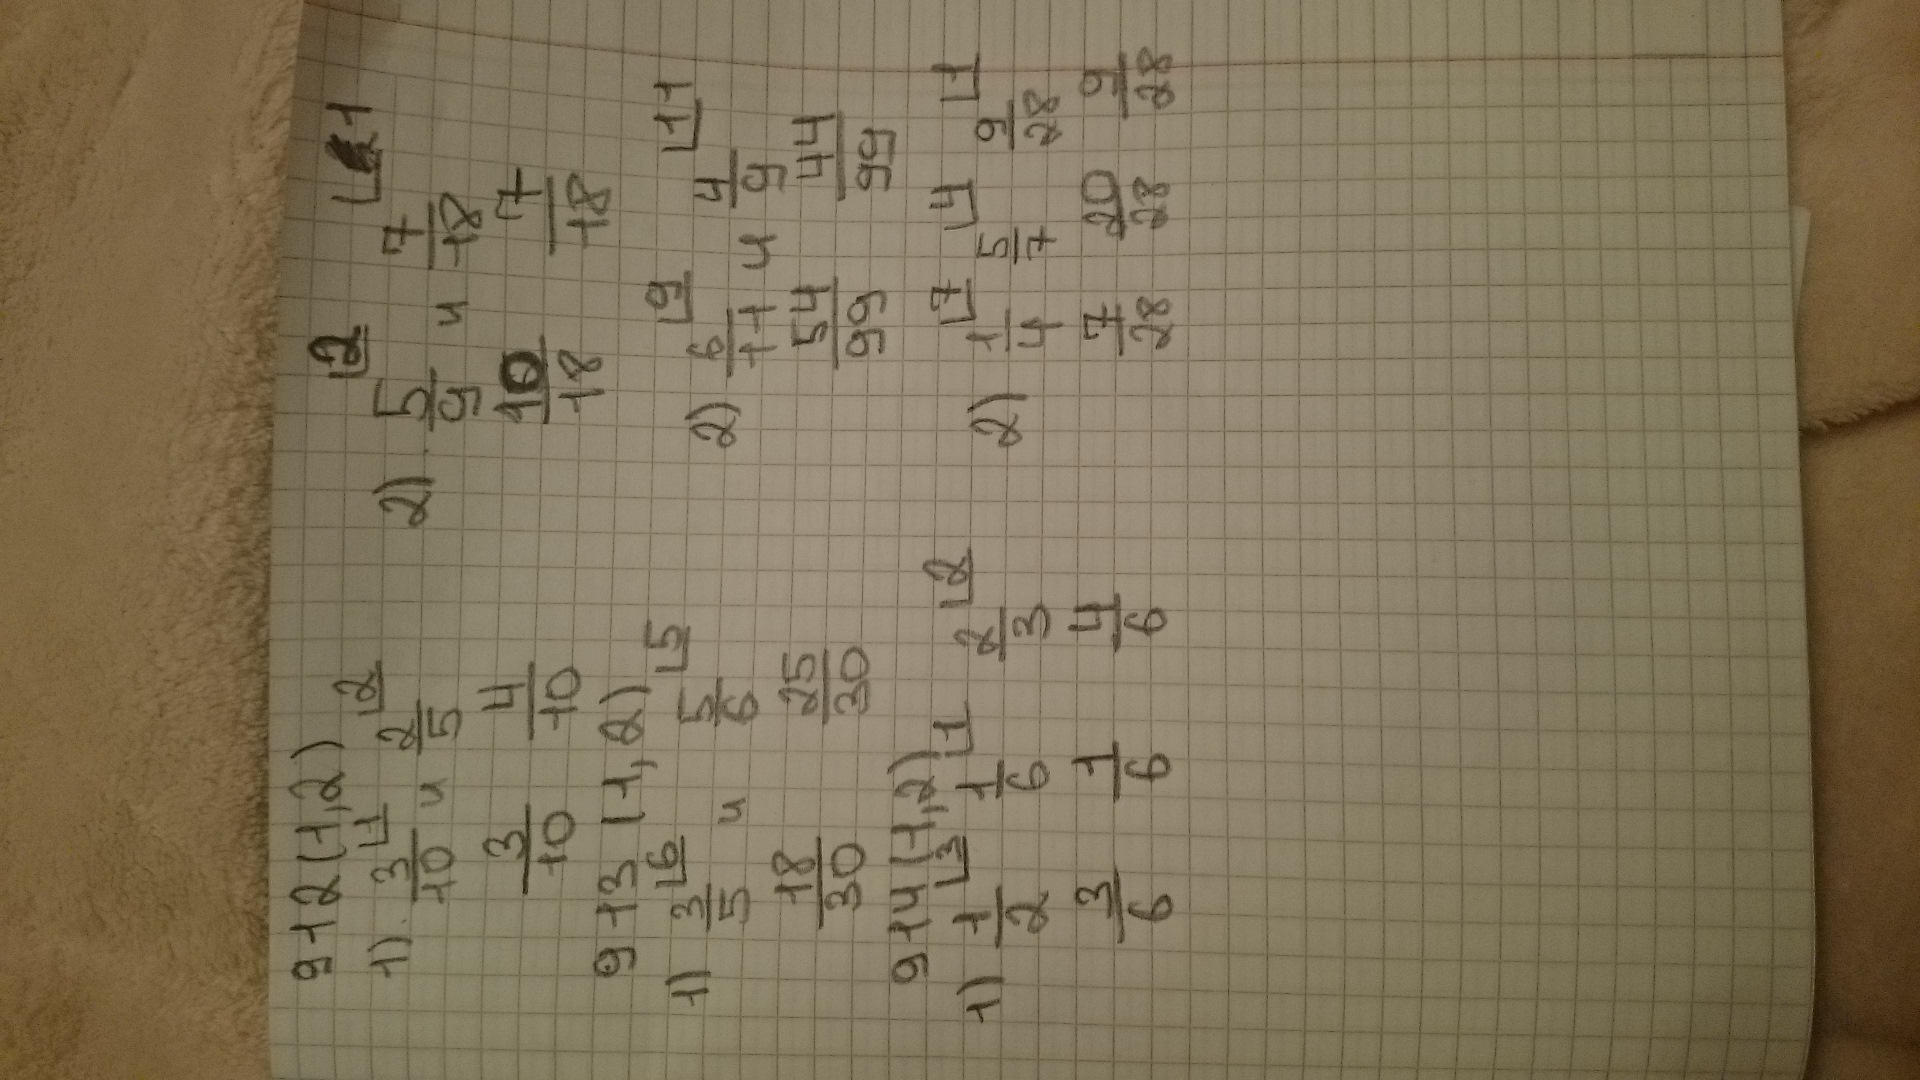 912 (1,2)
1) 3/10 ⌊1 и 2/5 ⌊2
3/10 4/10
2) 5/9 ⌊2 и 7/18 ⌊1
10/18 7/18
913 (1,2)
1) 3/5 ⌊6 и 5/6 ⌊5
18/30 25/30
2) 6/11 ⌊9 и 4/9 ⌊11
54/99 44/99
914 (1,2)
1) 1/2 ⌊3 1/6 ⌊1 2/3 ⌊2
3/6 1/6 4/6
2) 1/4 ⌊7 5/7 ⌊4 9/28 ⌊1
7/28 20/28 9/28